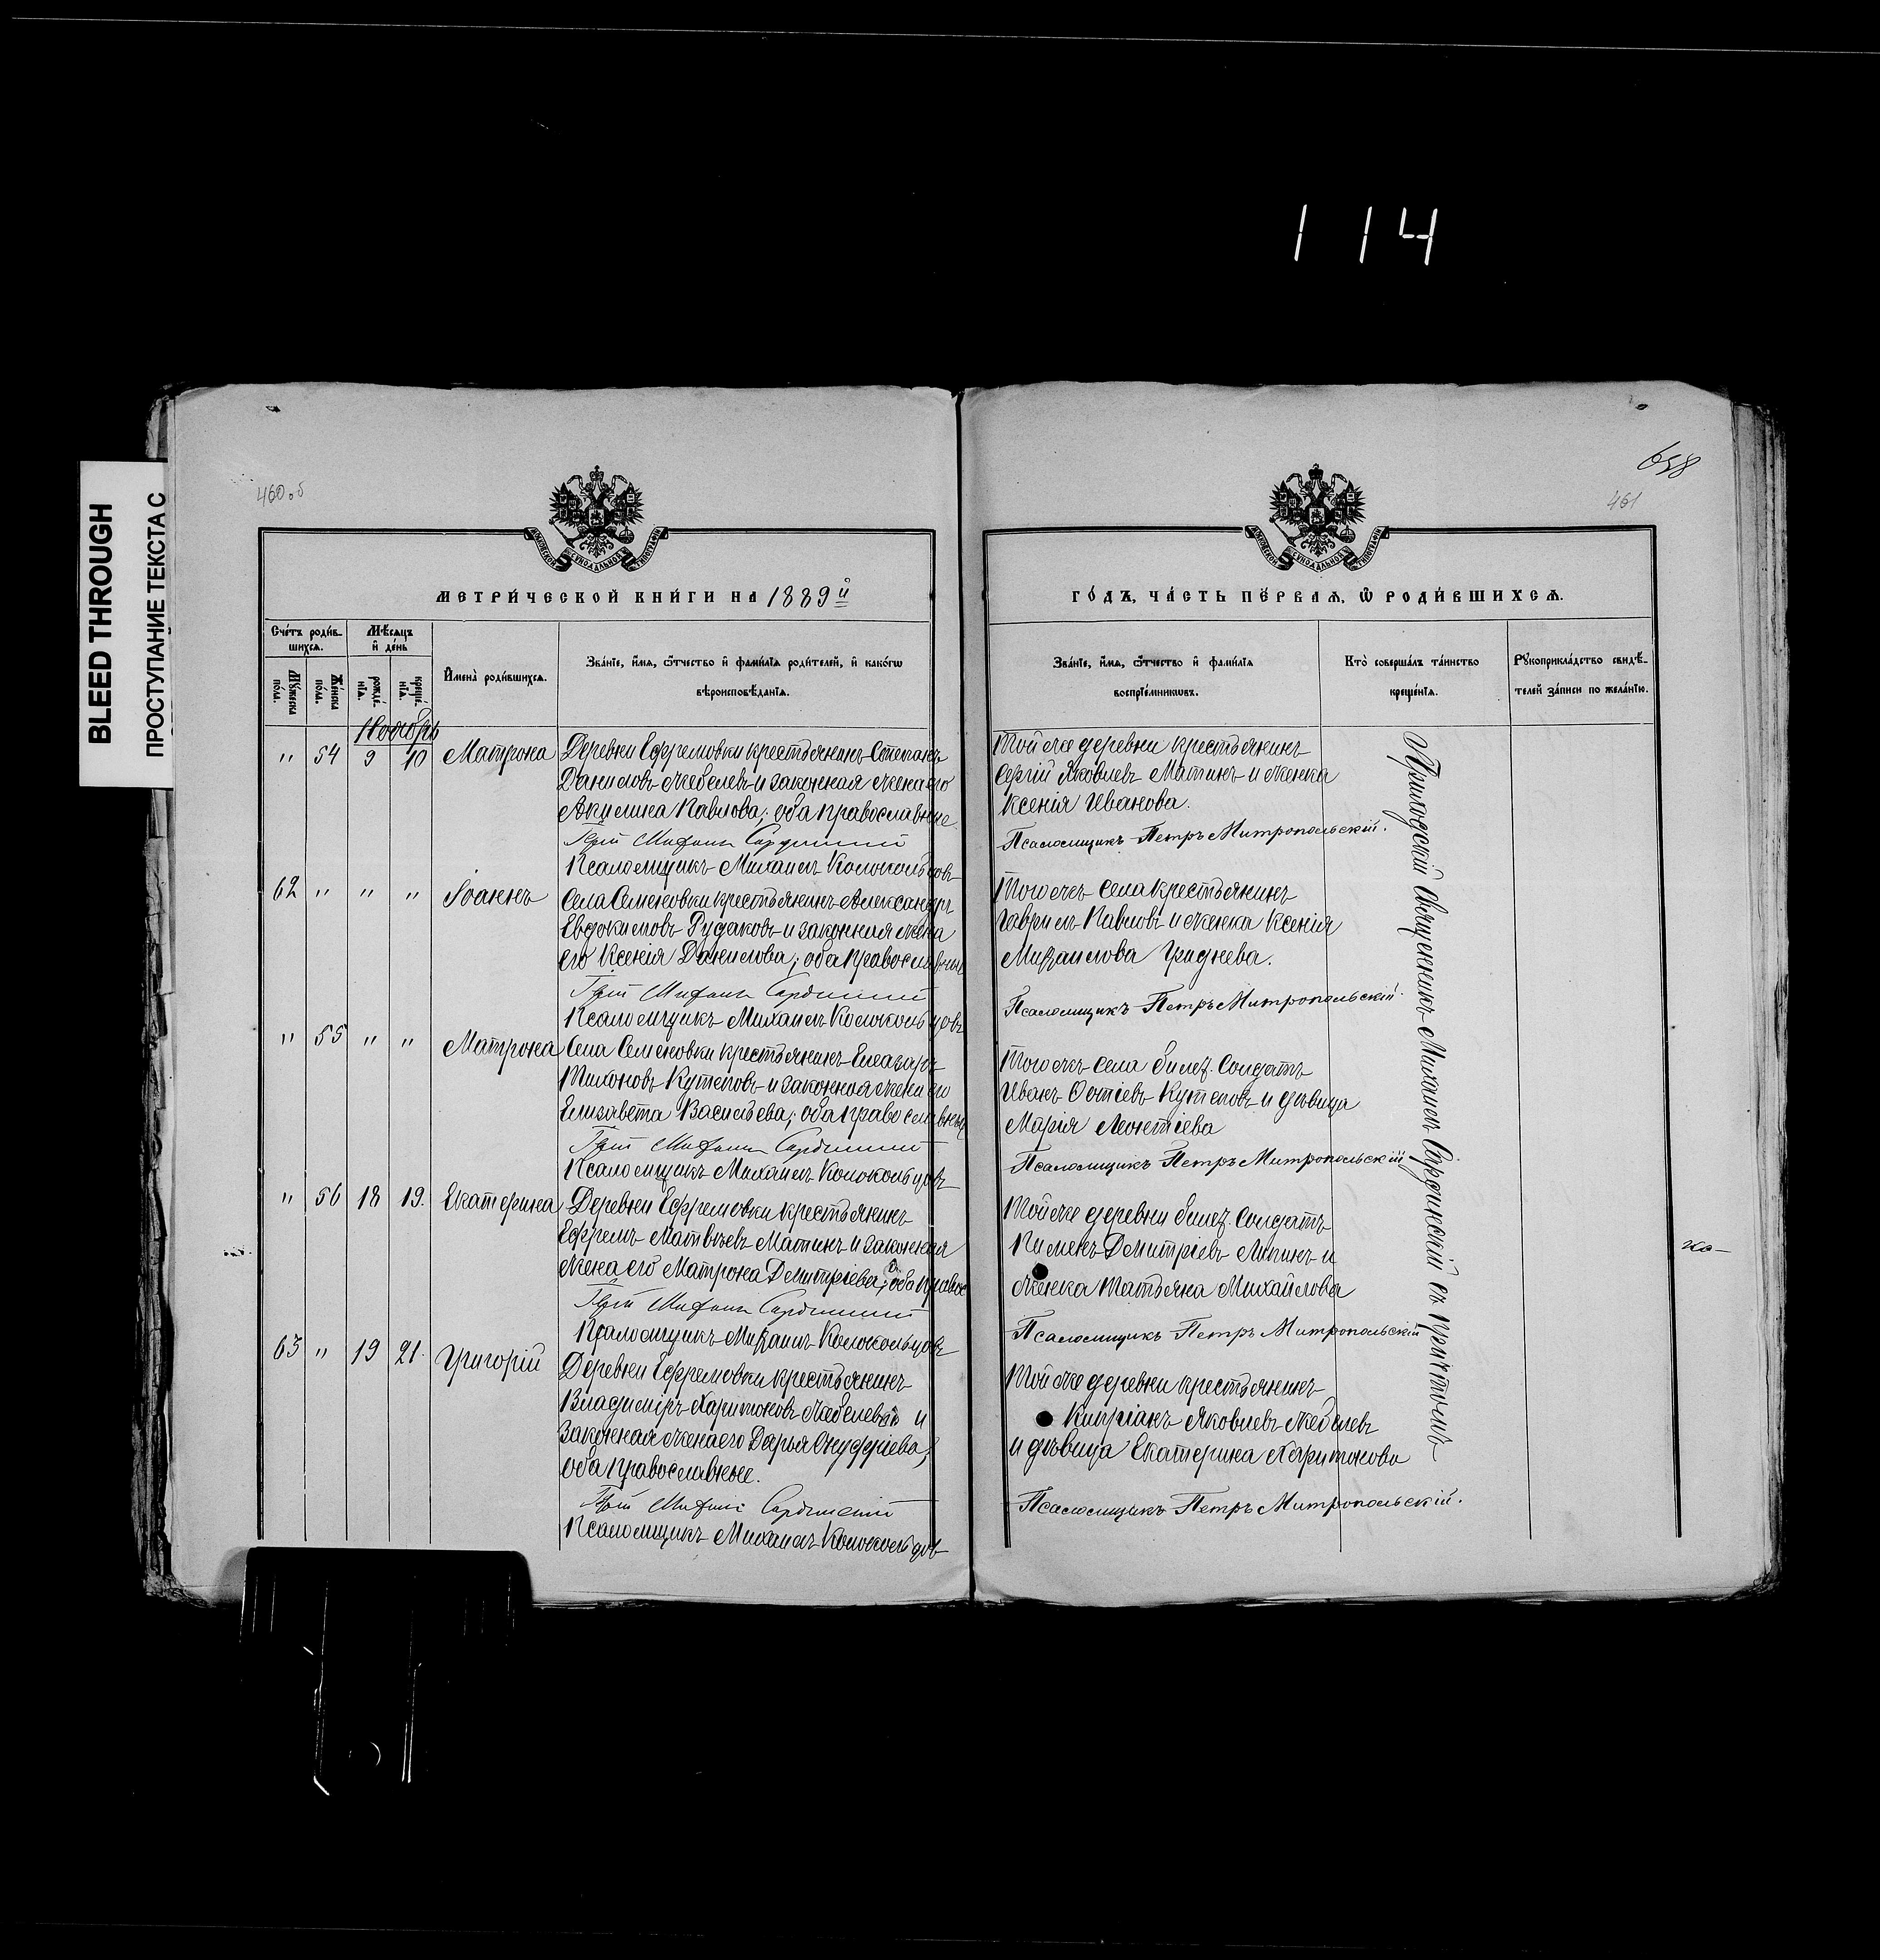 114
BLEED THROUGH
ПРОСТУПАНИЕ ТЕКСТА С
460об
МЕТРИЧЕСКОЙ КНИГИ НА 1889й
Счетъ родив-
шихся.
Мѣсяцъ
и день
Мужеска
пола.
Женска
пола.
рожде-
нія.
креще-
нія.
Имена родившихся.
Званіе, имя, отчество и фамилія родителей, и какого
вѣроисповѣданія.
Ноябрь
" 54 9 10 Матрона Деревни Ефремовки крестьянинъ Степанъ
Даниловъ Жебелевъ и законная жена его
Акилина Павлова; оба православные
Михаилъ Сардинскій
Псаломщикъ Михаилъ Колокольцовъ
62 " " " Іоаннъ Села Семеновки крестьянинъ Александръ
Евдокимовъ Рудаковъ и законная жена
его Ксенія Данилова; оба православные
Михаилъ Сардинскій
Псаломщикъ Михаилъ Колокольцовъ
" 55 " " Матрона Села Семеновки крестьянинъ Елеазаръ
Тихоновъ Кутеповъ и законная жена его
Елизавета Васильева; оба православные
Михаилъ Сардинскій
Псаломщикъ Михаилъ Колокольцовъ
" 56 18 19. Екатерина Деревни Ефремовки крестьянинъ
Ефремъ Матвѣевъ Матинъ и законная
жена его Матрона Дмитріева; оба правос
Михаилъ Сардинскій
Псаломщикъ Михаилъ Колокольцовъ
63 " 19 21. Григорій Деревни Ефремовки крестьянинъ
Владиміръ Харитоновъ и
законная жена его Дарья Онуфріева;
оба православные.
Михаилъ Сардинскій
Псаломщикъ Михаилъ Колокольцовъ
658
461
ГОДЪ, ЧАСТЬ ПЕРВАЯ, Ѡ РОДИВШИХСЯ.
Званіе, имя, отчество и фамилія
воспріемниковъ.
Кто совершалъ таинство
крещенія.
Рукоприкладство свидѣ-
телей записи по желанію.
Той же деревни крестьянинъ
Сергій Яковлевъ Матинъ и женка
Ксенія Иванова.
Псаломщикъ Петръ Митропольскій.
Того же села крестьянинъ
Гавриилъ Павловъ и женка Ксенія
Михаилова Гриднева.
Псаломщикъ Петръ Митропольскій.
Того же села билет. солдатъ
Иванъ Фотіевъ Кутеповъ и дѣвица
Марія Леонтіева
Псаломщикъ Петръ Митропольскій
Той же деревни билет. солдатъ
Пименъ Дмитріевъ Липинъ и
женка Татьяна Михайлова
Псаломщикъ Петръ Митропольскій
Той же деревни крестьянинъ
Кипріанъ Яковлевъ Жебелевъ
и дѣвица Екатерина Харитонова
Псаломщикъ Петръ Митропольскій.
Приходскій Священникъ Михаилъ Сардинскій съ причтомъ